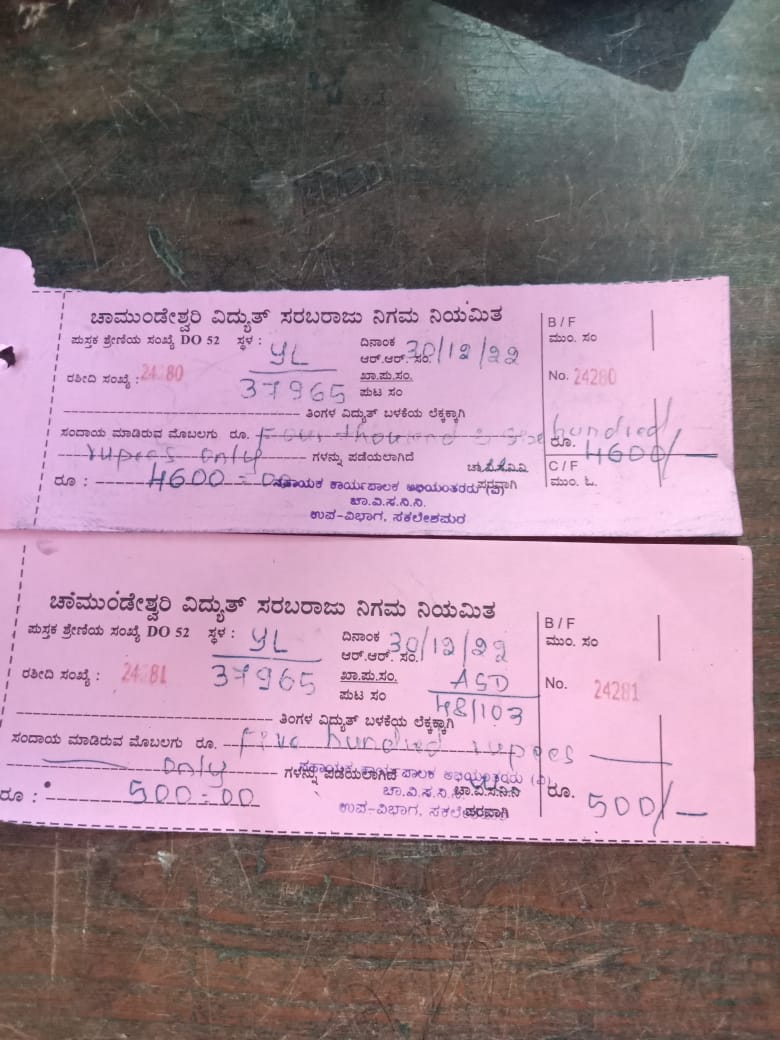 ಚಾಮುಂಡೇಶ್ವರಿ ವಿದ್ಯುತ್ ಸರಬರಾಜು ನಿಗಮ ನಿಯಮಿತ
ಪುಸ್ತಕ ಶ್ರೇಣಿಯ ಸಂಖ್ಯೆ DO 52 ಸ್ಥಳ : YL ದಿನಾಂಕ 30/12/22
ಆರ್.ಆರ್. ಸಂ.
ರಶೀದಿ ಸಂಖ್ಯೆ : 24280 37965 ಖಾ.ಪು.ಸಂ.
ಪುಟ ಸಂ
ತಿಂಗಳ ವಿದ್ಯುತ್ ಬಳಕೆಯ ಲೆಕ್ಕಕ್ಕಾಗಿ
ಸಂದಾಯ ಮಾಡಿರುವ ಮೊಬಲಗು ರೂ. Four thousand & six hundred
rupees only ಗಳನ್ನು ಪಡೆಯಲಾಗಿದೆ
ರೂ : 4600=00 ಪರವಾಗಿ
ಸಹಾಯಕ ಕಾರ್ಯಪಾಲಕ ಅಭಿಯಂತರರು (ವಿ)
ಚಾ.ವಿ.ಸ.ನಿ.ನಿ.
ಉಪ-ವಿಭಾಗ, ಸಕಲೇಶಪುರ
B / F
ಮುಂ. ಸಂ
No. 24280
ರೂ. 4600/-
C / F
ಮುಂ. ಓ.
ಚಾಮುಂಡೇಶ್ವರಿ ವಿದ್ಯುತ್ ಸರಬರಾಜು ನಿಗಮ ನಿಯಮಿತ
ಪುಸ್ತಕ ಶ್ರೇಣಿಯ ಸಂಖ್ಯೆ DO 52 ಸ್ಥಳ : YL ದಿನಾಂಕ 30/12/22
ಆರ್.ಆರ್. ಸಂ.
ರಶೀದಿ ಸಂಖ್ಯೆ : 24281 37965 ಖಾ.ಪು.ಸಂ. ASD
ಪುಟ ಸಂ 48/103
ತಿಂಗಳ ವಿದ್ಯುತ್ ಬಳಕೆಯ ಲೆಕ್ಕಕ್ಕಾಗಿ
ಸಂದಾಯ ಮಾಡಿರುವ ಮೊಬಲಗು ರೂ. Five hundred rupees
only ಗಳನ್ನು ಪಡೆಯಲಾಗಿದೆ
ಸಹಾಯಕ ಕಾರ್ಯಪಾಲಕ ಅಭಿಯಂತರರು (ವಿ)
ರೂ : 500=00 ಚಾ.ವಿ.ಸ.ನಿ.ನಿ ಚಾ.ವಿ.ಸ.ನಿ.ನಿ
ಉಪ-ವಿಭಾಗ, ಪರವಾಗಿ
B / F
ಮುಂ. ಸಂ
No. 24281
ರೂ. 500/-